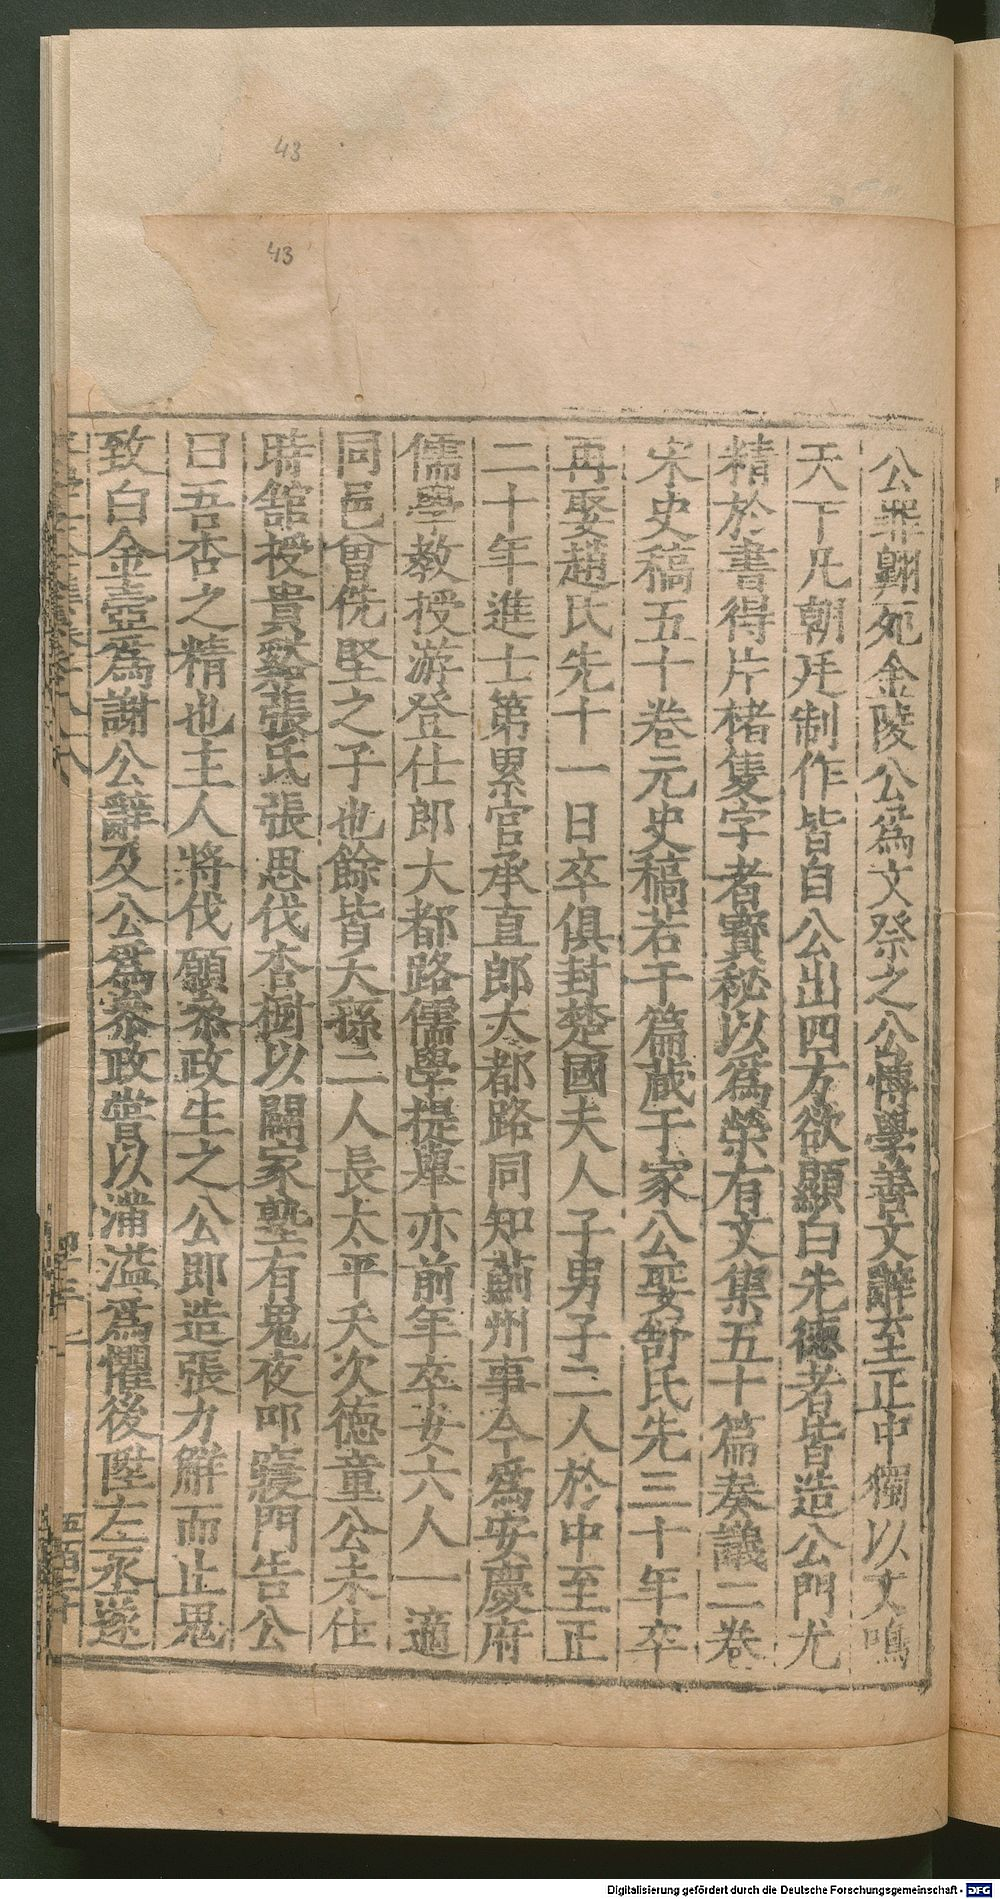 43
43
公罪翺死金陵公爲文祭之公博學善文辭至正中獨以文鳴
天下凡朝廷制作皆自公出四方欲顯白先德者皆造公門尤
精於書得片楮隻字者寶秘以爲榮有文集五十篇奏議二卷
宋史稿五十卷元史稿若干篇藏于家公娶舒氏先三十年卒
再娶趙氏先十一日卒俱封楚國夫人子男子二人於中至正
二十年進士第累官承直郎大都路同知薊州事今爲安慶府
儒學教授游登仕郎大都路儒學提舉亦前年卒女六人一適
同邑曾侁堅之子也餘皆夭孫二人長太平夭次德童公未仕
時舘授貴谿張氏張思伐杏樹以闢家塾有鬼夜叩寢門告公
曰吾杏之精也主人將伐願叅政生之公即造張力觧而止鬼
致白金壺爲謝公辭及公爲叅政嘗以滿溢爲懼後陞左丞遂
五百二十
Digitalisierung gefördert durch die Deutsche Forschungsgemeinschaft - DFG